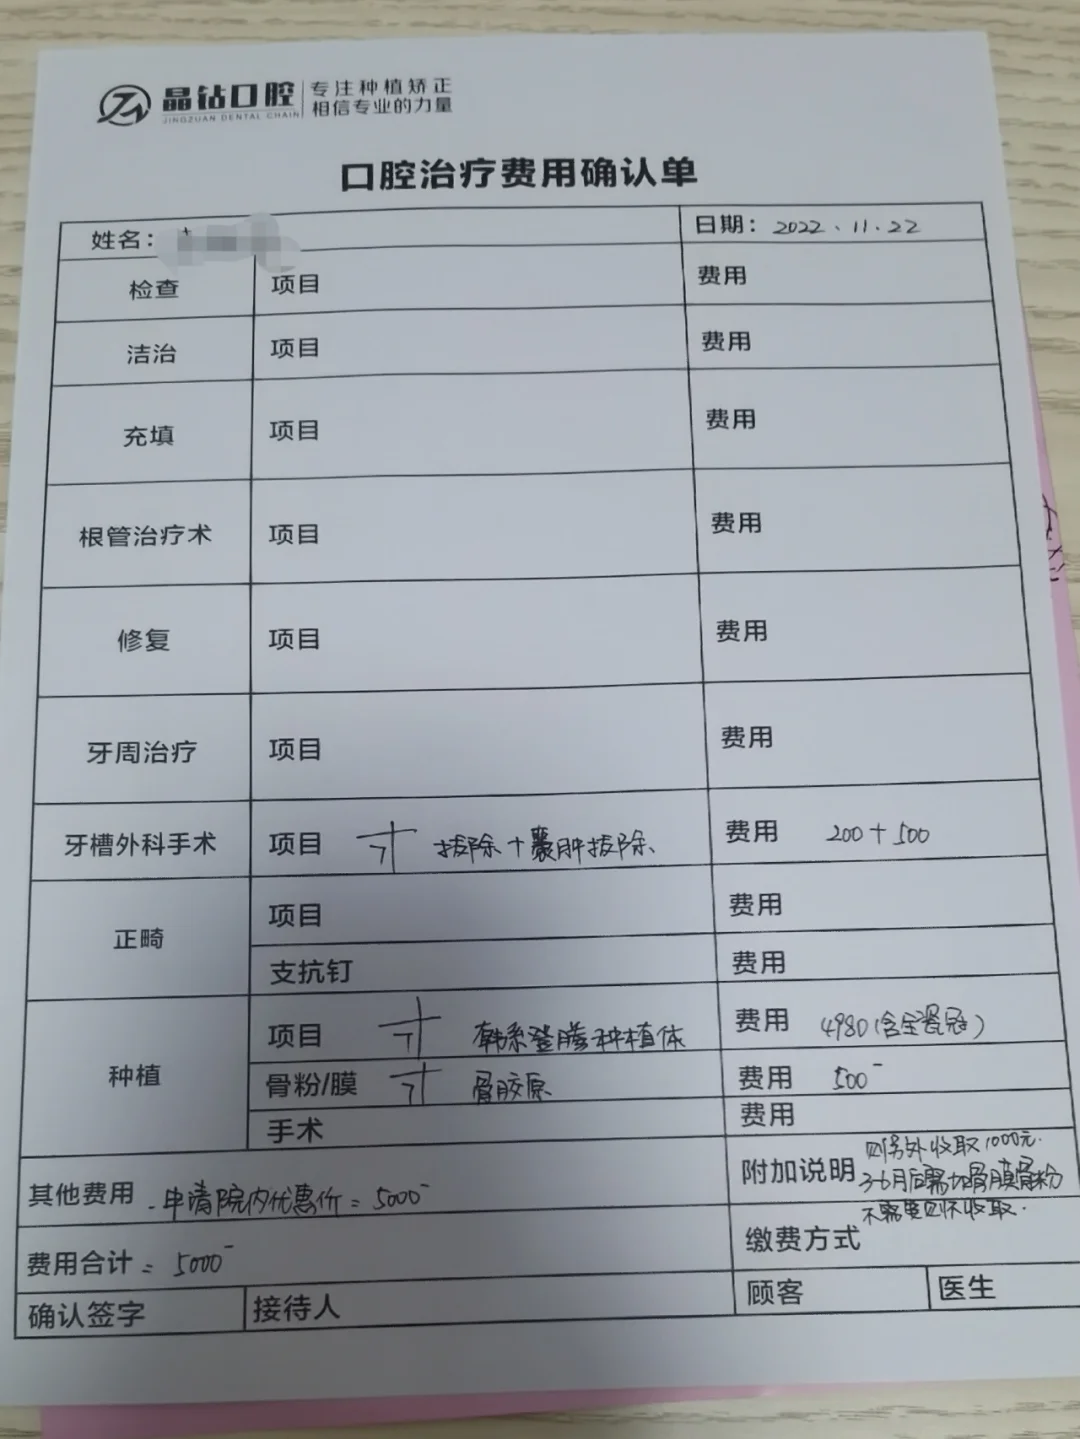 晶钻口腔 专注种植矫正
JINGZUAN DENTAL CHAIN 相信专业的力量
口腔治疗费用确认单
姓名： 日期：2022、11.22
检查 项目 费用
洁治 项目 费用
充填 项目 费用
根管治疗术 项目 费用
修复 项目 费用
牙周治疗 项目 费用
牙槽外科手术 项目 拔除+囊肿拔除、 费用 200+500
正畸 项目 费用
支抗钉 费用
种植 项目 韩系登腾种植体 费用 4980(含全瓷冠)
骨粉/膜 骨胶原 费用 500-
手术 费用
其他费用 -申请院内优惠价=5000- 附加说明
则另外收取1000元.
3-6月后需加骨膜骨粉
不需要则不收取.
费用合计=5000- 缴费方式
确认签字 接待人 顾客 医生